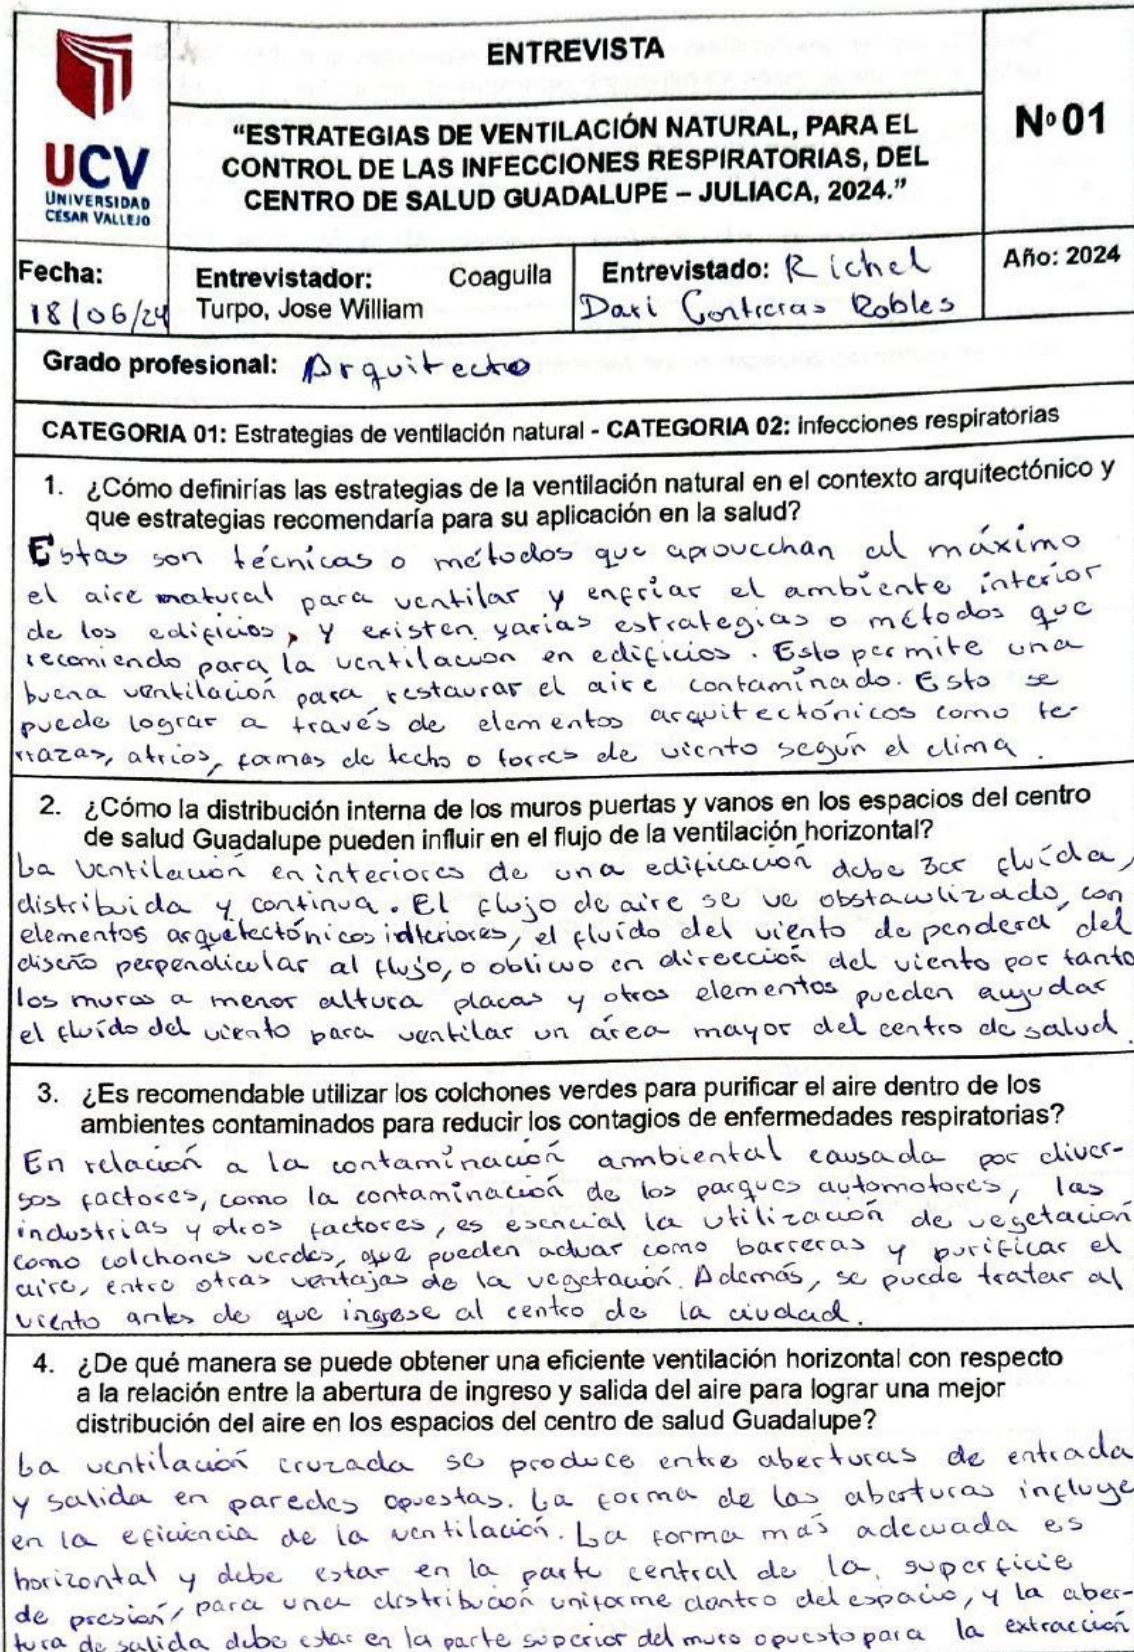 ENTREVISTA
UCV
UNIVERSIDAD
CÉSAR VALLEJO
“ESTRATEGIAS DE VENTILACIÓN NATURAL, PARA EL
CONTROL DE LAS INFECCIONES RESPIRATORIAS, DEL
CENTRO DE SALUD GUADALUPE – JULIACA, 2024.”
Nº 01
Fecha:
18/06/24
Entrevistador: Coaguila
Turpo, Jose William
Entrevistado: Richel
Dari Contreras Robles
Año: 2024
Grado profesional: Arquitecto
CATEGORIA 01: Estrategias de ventilación natural - CATEGORIA 02: infecciones respiratorias
1. ¿Cómo definirías las estrategias de la ventilación natural en el contexto arquitectónico y
que estrategias recomendaría para su aplicación en la salud?
Estas son técnicas o métodos que aprovechan al máximo
el aire natural para ventilar y enfriar el ambiente interior
de los edificios, y existen varias estrategias o métodos que
recomiendo para la ventilacion en edificios. Esto permite una
buena ventilación para restaurar el aire contaminado. Esto se
puede lograr a través de elementos arquitectónicos como te-
rrazas, atrios, formas de techo o torres de viento según el clima.
2. ¿Cómo la distribución interna de los muros puertas y vanos en los espacios del centro
de salud Guadalupe pueden influir en el flujo de la ventilación horizontal?
La ventilación en interiores de una edificación debe ser fluída,
distribuida y continua. El flujo de aire se ve obstaculizado, con
elementos arquetectónicos interiores, el fluído del viento dependerá del
diseño perpendicular al flujo, o oblicuo en dirección del viento por tanto
los muros a menor altura placas y otros elementos pueden ayudar
el fluído del viento para ventilar un área mayor del centro de salud.
3. ¿Es recomendable utilizar los colchones verdes para purificar el aire dentro de los
ambientes contaminados para reducir los contagios de enfermedades respiratorias?
En relación a la contaminación ambiental causada por diver-
sos factores, como la contaminación de los parques automotores, las
industrias y otros factores, es esencial la utilización de vegetación
como colchones verdes, que pueden actuar como barreras y purificar el
aire, entre otras ventajas de la vegetación. Además, se puede tratar al
viento antes de que ingrese al centro de la ciudad.
4. ¿De qué manera se puede obtener una eficiente ventilación horizontal con respecto
a la relación entre la abertura de ingreso y salida del aire para lograr una mejor
distribución del aire en los espacios del centro de salud Guadalupe?
La ventilación cruzada se produce entre aberturas de entrada
y salida en paredes opuestas. La forma de las aberturas influye
en la eficiencia de la ventilación. La forma más adecuada es
horizontal y debe estar en la parte central de la superficie
de presión, para una distribución uniforme dentro del espacio, y la aber-
tura de salida debe estar en la parte superior del muro opuesto para la extracción